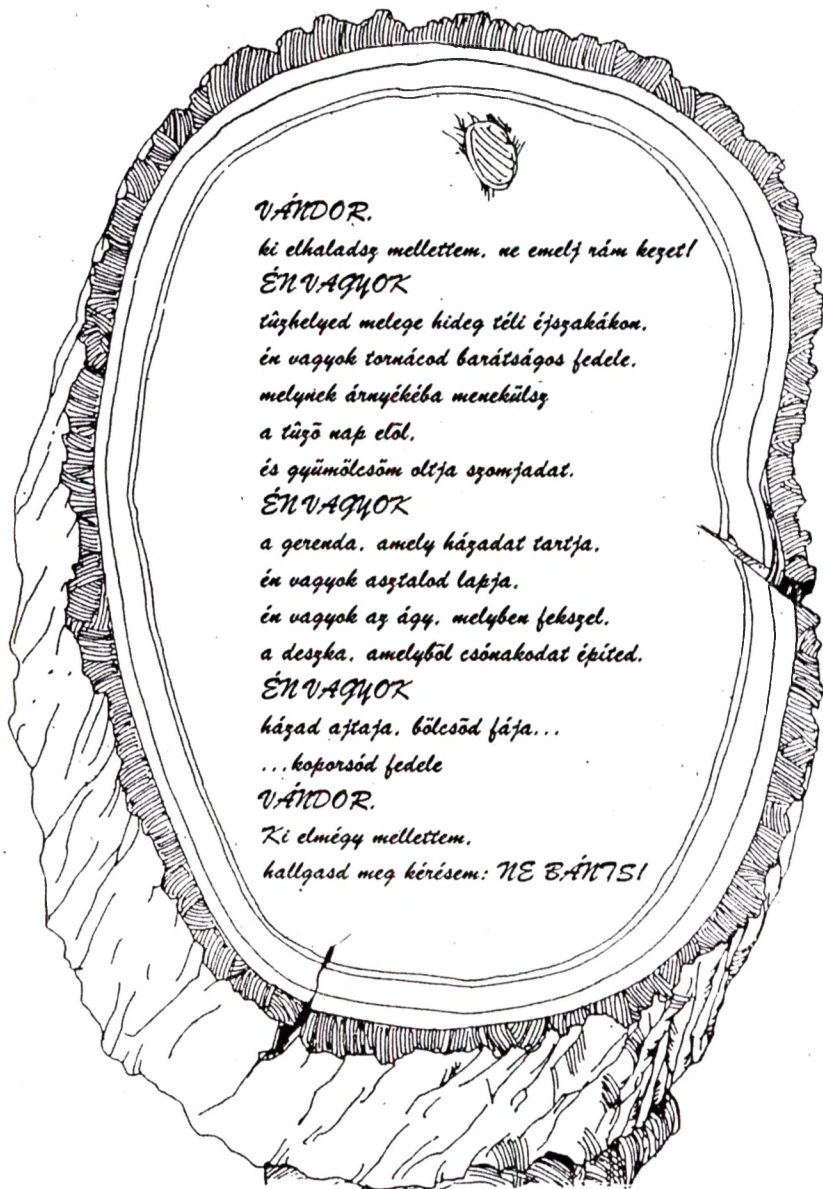 VÁNDOR,
ki elhaladsz mellettem, ne emelj rám kezet!
ÉN VAGYOK
tûzhelyed melege hideg téli éjszakákon,
én vagyok tornácod barátságos fedele,
melynek árnyékába menekülsz
a tûzõ nap elõl,
és gyümölcsöm oltja szomjadat.
ÉN VAGYOK
a gerenda, amely házadat tartja,
én vagyok asztalod lapja,
én vagyok az ágy, melyben fekszel,
a deszka, amelybõl csónakodat építed.
ÉN VAGYOK
házad ajtaja, bölcsõd fája...
...koporsód fedele
VÁNDOR,
Ki elmégy mellettem,
hallgasd meg kérésem: NE BÁNTS!